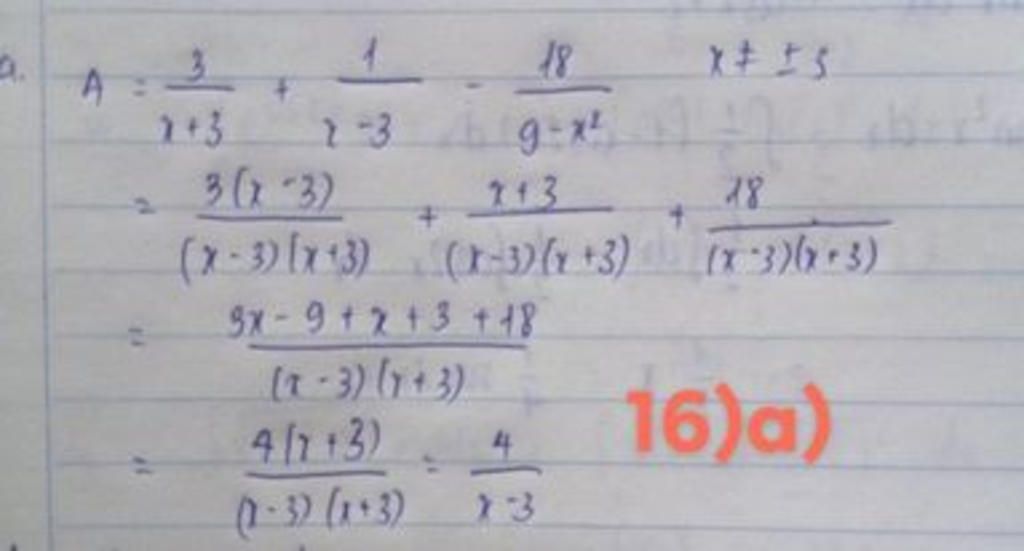 a. A = 3/(x+3) + 1/(x-3) - 18/(9-x²) x ≠ ± 3
= 3(x-3)/((x-3)(x+3)) + (x+3)/((x-3)(x+3)) + 18/((x-3)(x+3))
= (3x-9+x+3+18)/((x-3)(x+3))
= 4(x+3)/((x-3)(x+3)) = 4/(x-3)
16)a)